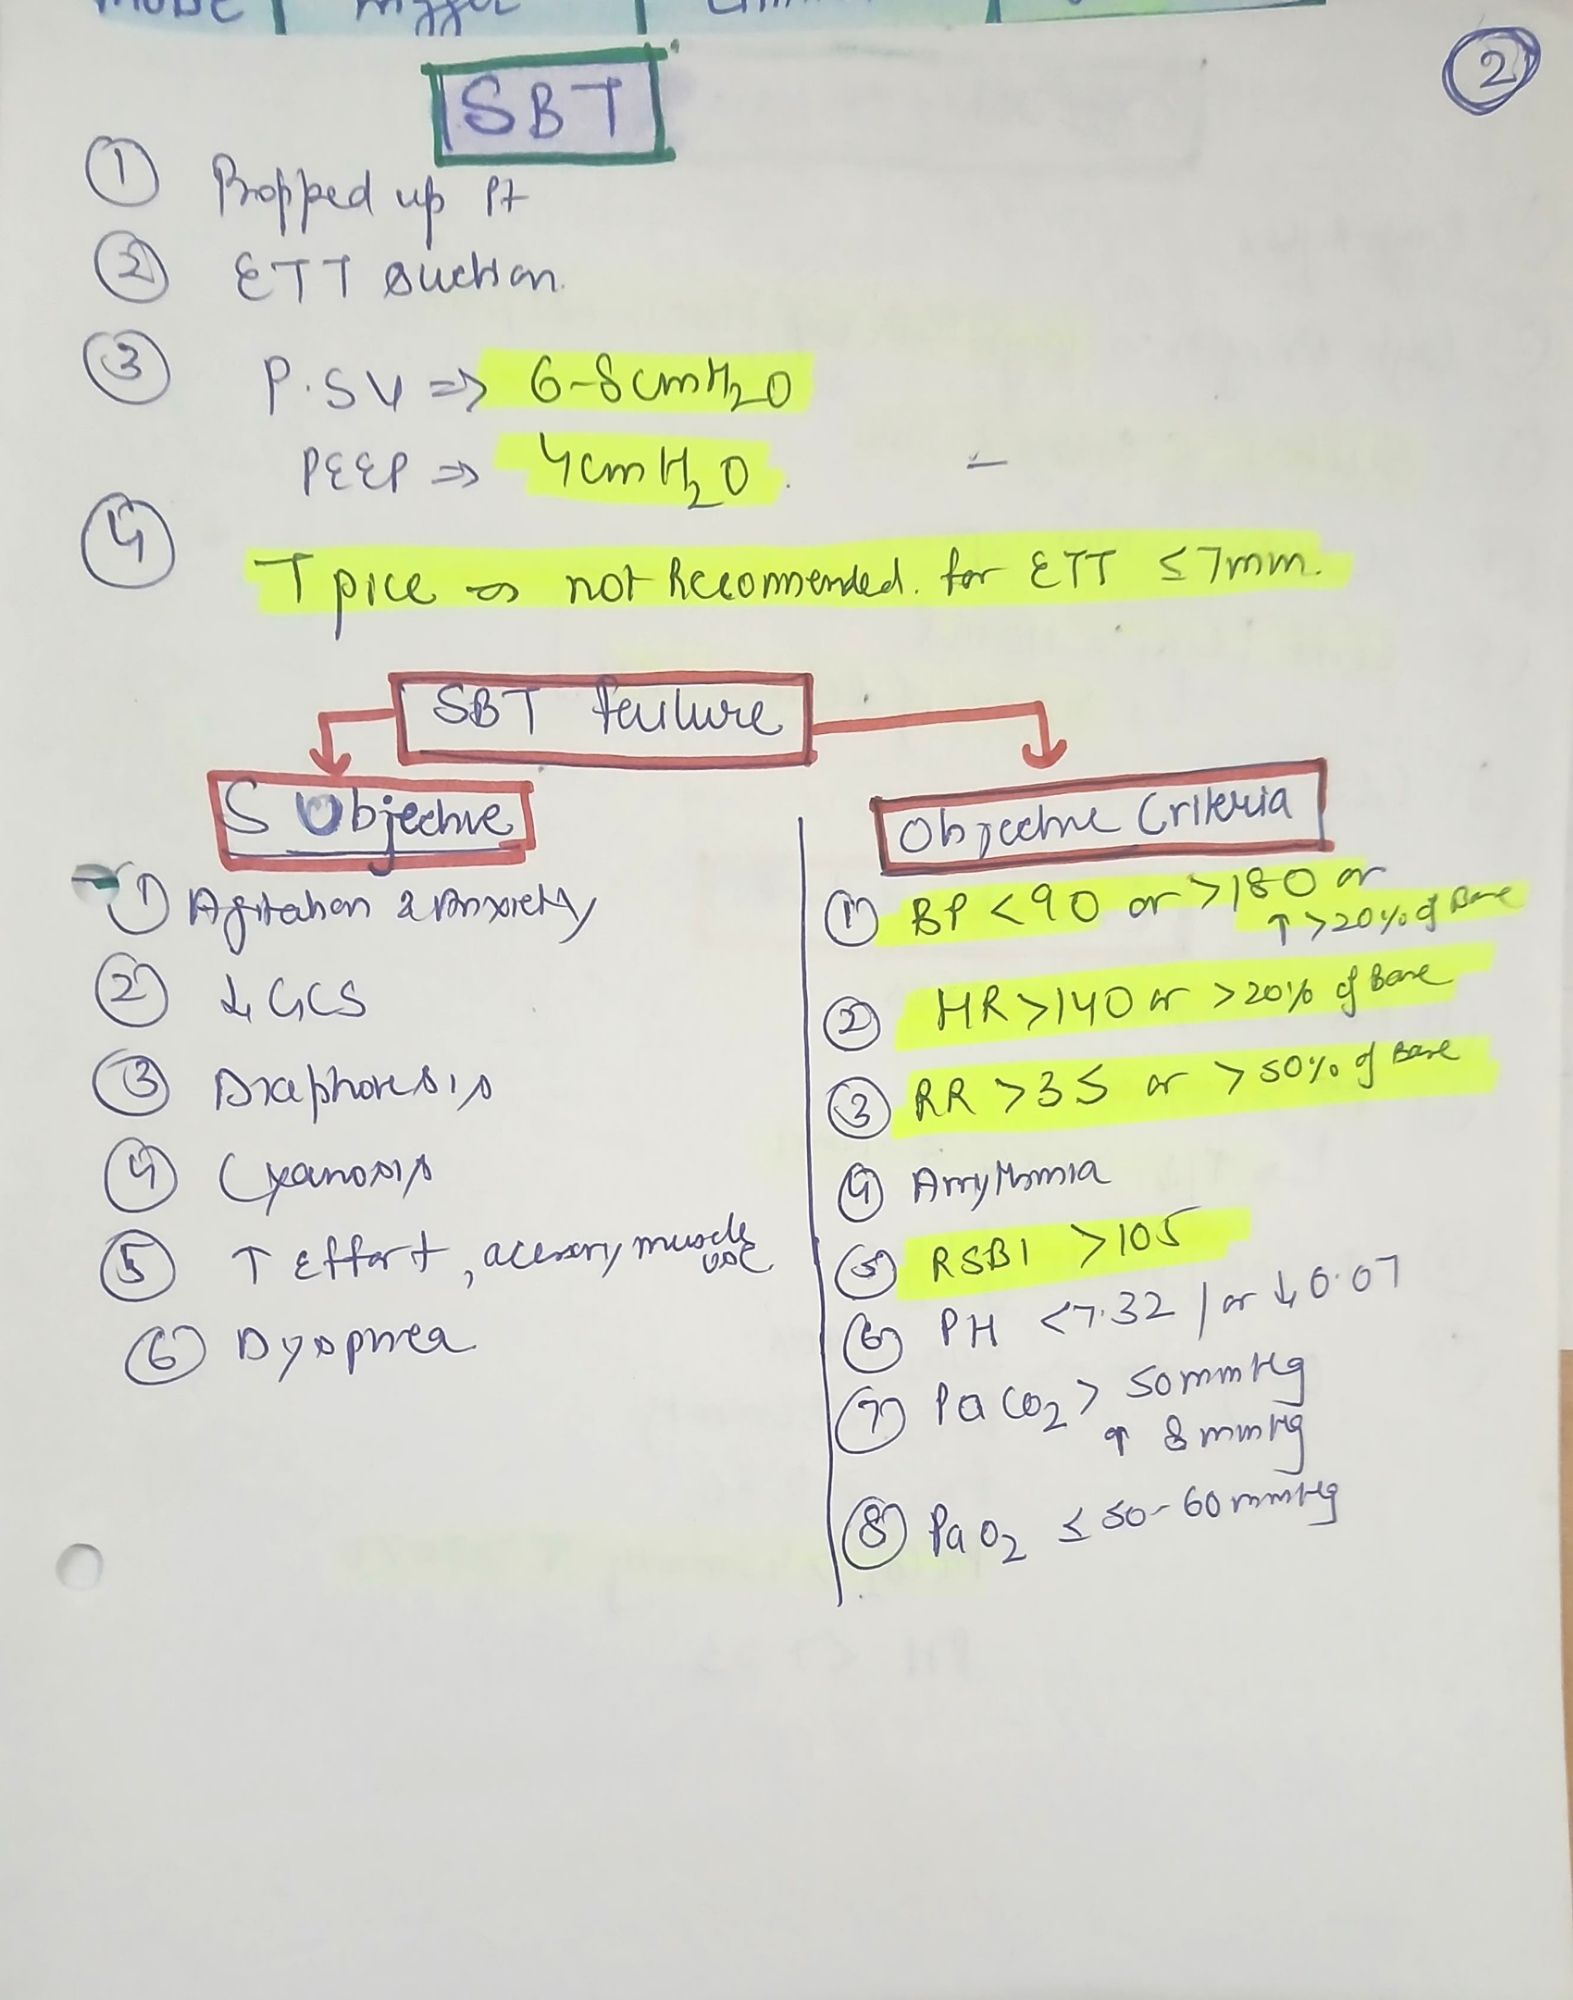 MODE
Trigger
2
SBT
① Propped up Pt
② ETT suction.
③ P.SV ⇒ 6-8 cmH₂O
PEEP ⇒ 4cm H₂O.
④
T pice → not Recommended. for ETT ≤ 7mm.
SBT failure
SUbjective
① Agitation & Anxiety
② ↓ GCS
③ Diaphoresis
④ Cyanosis
⑤ ↑ Effort, acessory muscle
use
⑥ Dyspnea
Objective Criteria
① BP <90 or >180 or
↑ >20% of Base
② HR >140 or >20% of Base
③ RR >35 or >50% of Base
④ Arrythmia
⑤ RSBI >105
⑥ PH <7.32 / or ↓ 0.07
⑦ PaCO₂ > 50mmHg
↑ 8 mmHg
⑧ PaO₂ ≤ 50-60 mmHg